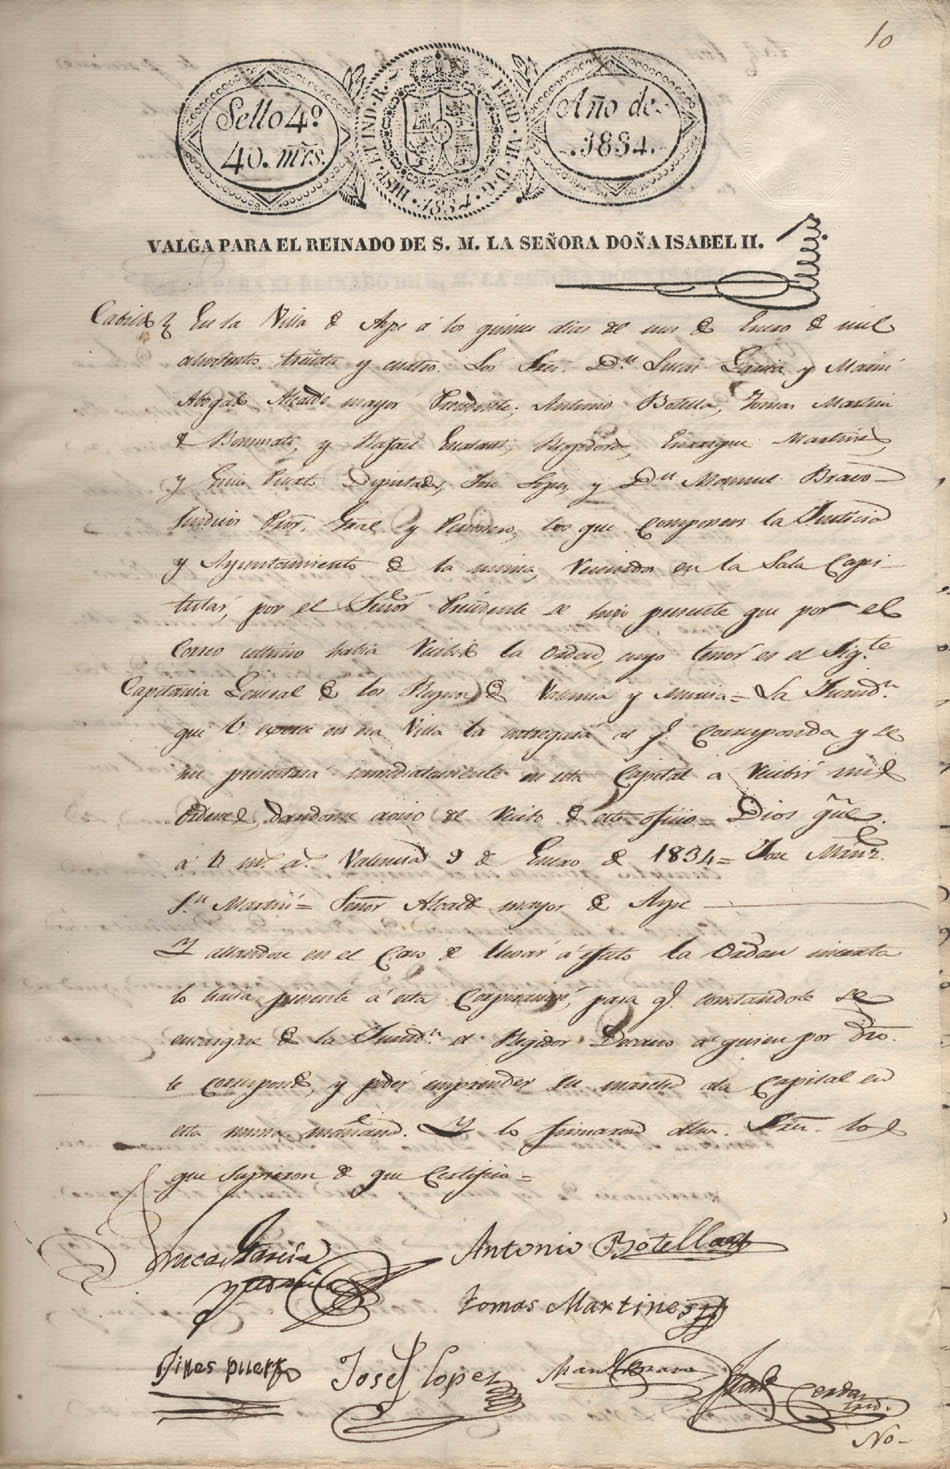 10
Sello 4º
40. mrs.
HISP. ET IND. R. FERD. VII. D. G. 1834.
Año de
1834.
VALGA PARA EL REINADO DE S. M. LA SEÑORA DOÑA ISABEL II.
Cabildo En la Villa de Aspe á los quince dias del mes de Enero de mil
ochocientos treinta y cuatro. Los Sres. Dn. Lucas Garcia y
Alcalde mayor Presidente, Antonio Botella, Tomas Martinez
de Bonmati, y Rafael Regidores, Enrrique Martinez
y Gines Puerto Diputados, José Lopez y Dn Manuel Bravo
Sindicos Pror. Gral. y Personero, los que componen la Justicia
y Ayuntamiento de la misma, reunidos en la Sala Capi-
tular, por el Señor Presidente se hizo presente que por el
Correo ultimo habia recibido la orden, cuyo tenor es el Sigte
Capitania General de los Reynos de Valencia y Murcia = La Jurisdn.
que V. exerce en esa Villa la entregará al q. corresponda y se
me presentará inmediatamente en esta Capital a recibir mis
ordenes, dandome aviso del recibo de este oficio = Dios gue.
á V. ms. as. Valencia 9 de Enero de 1834 = José
Sn. Martin = Señor Alcalde mayor de Aspe
Y allandose en el Caso de llevar á efecto la Orden inserta
lo hacia presente á esta Corporacion, para q. constandole se
encargue de la Jurisdn. el Regidor Decano a quien por dro.
le corresponde, y poder emprender su marcha ala Capital en
esta misma mañana. Y lo firmaron dhos. Sres. los
que supieron de que Certifico =
Lucas Garcia
y
Antonio Botella
Tomas Martines
Gines puerto
José Lopez
Manl Bravo
Cerdan
No-